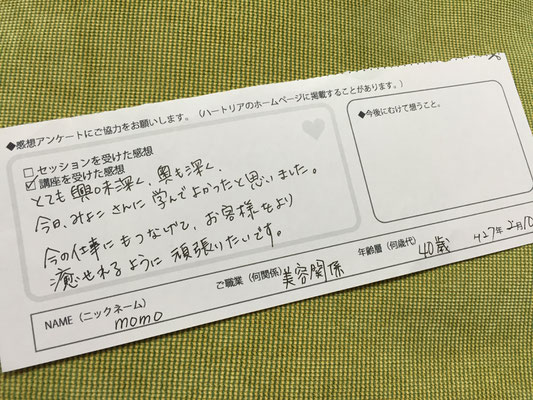 ◆感想アンケートにご協力をお願いします。（ハートリアのホームページに掲載することがあります。）
□ セッションを受けた感想
☑ 講座を受けた感想
とても興味深く、奥も深く、
今日、みよこさんに学んでよかったと思いました。
今の仕事にもつなげて、お客様をより
癒せれるように頑張りたいです。
◆今後にむけて想うこと。
NAME（ニックネーム） momo
ご職業（何関係） 美容関係
年齢層（何歳代） 40歳
H27年2月10